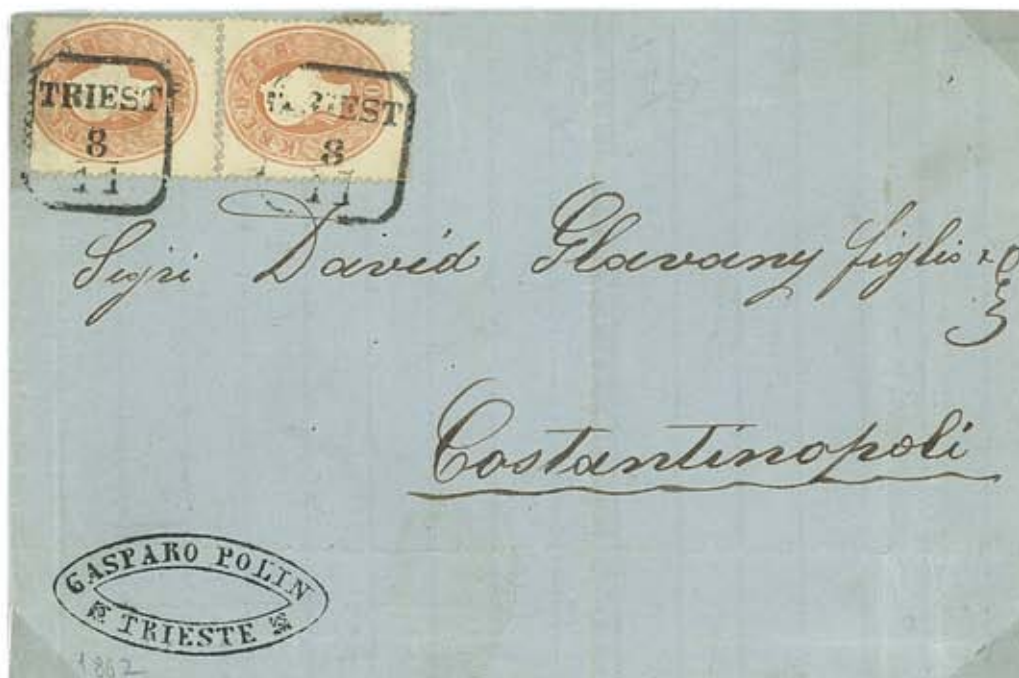 TRIEST
8
11
TRIEST
8
11
Sigri David Glavany figlio
Costantinopoli
GASPARO POLIN
TRIESTE
1862